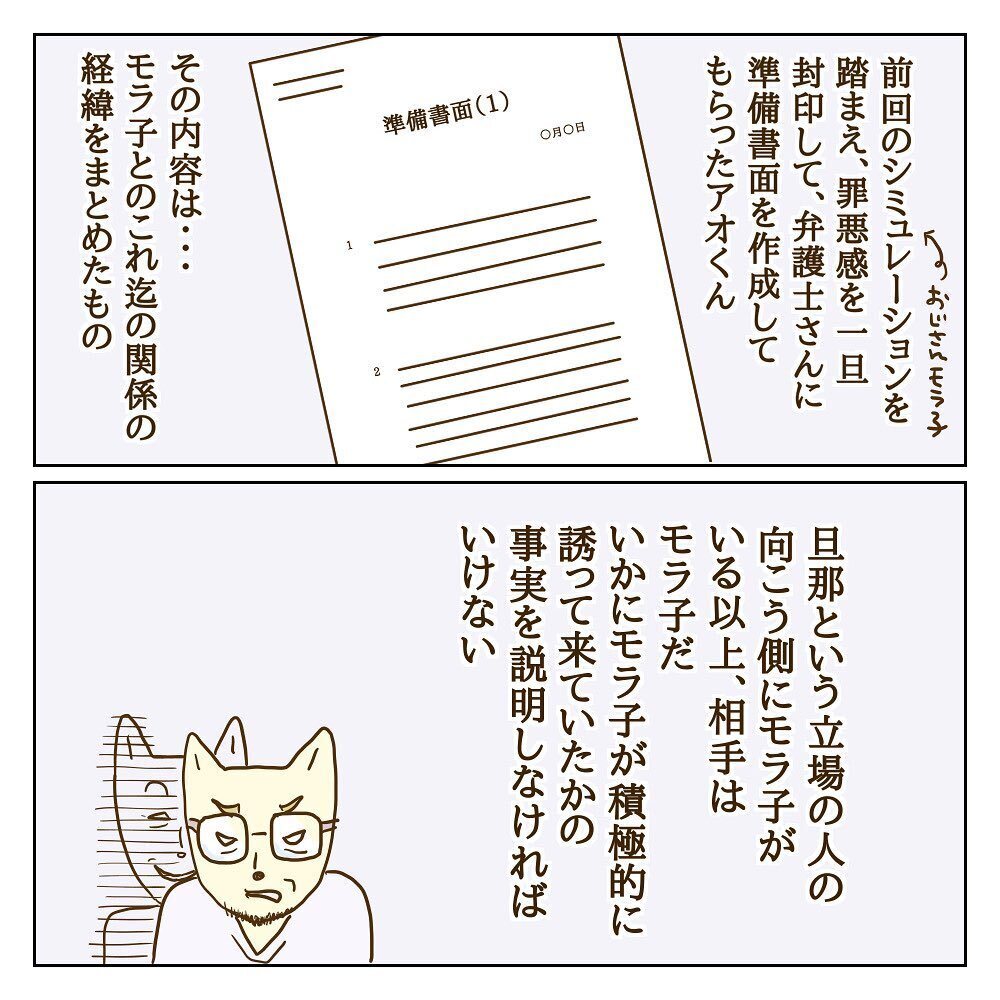 前回のシミュレーションを
踏まえ、罪悪感を一旦
封印して、弁護士さんに
準備書面を作成して
もらったアオくん
おじさんモラ子
準備書面(1)
〇月〇日
1
2
その内容は・・・
モラ子とのこれ迄の関係の
経緯をまとめたもの
旦那という立場の人の
向こう側にモラ子が
いる以上、相手は
モラ子だ
いかにモラ子が積極的に
誘って来ていたかの
事実を説明しなければ
いけない